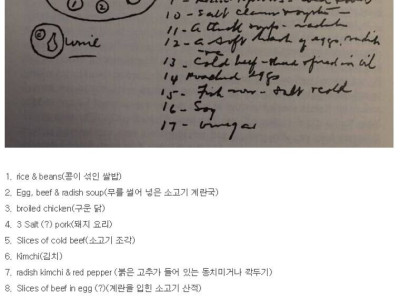 10 - Salt clams &
11 - A thick soup - radish
12 - A soft hash of eggs, radish
13 - Cold beef - fried in oil
14 Poached eggs
15 - Fish roe - salt & cold
16 - Soy
17 - Vinegar
1, rice & beans(콩이 섞인 쌀밥)
2, Egg, beef & radish soup(무를 썰어 넣은 소고기 계란국)
3, broiled chicken(구운 닭)
4, 3 Salt (?) pork(돼지 요리)
5, Slices of cold beef(소고기 조각)
6, Kimchi(김치)
7, radish kimchi & red pepper (붉은 고추가 들어 있는 동치미거나 깍두기)
8, Slices of beef in egg (?)(계란을 입힌 소고기 산적)